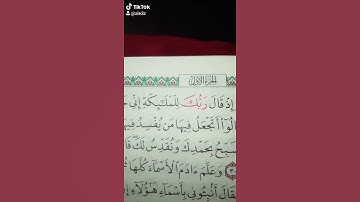 TikTok
الجزء الأول
إذ قال ربك للملائكة إني
أتجعل فيها من يفسد فيها
بحمدك ونقدس لك
وعلم ءادم الأسماء كلها
فقال أنبئوني بأسماء هؤلاء